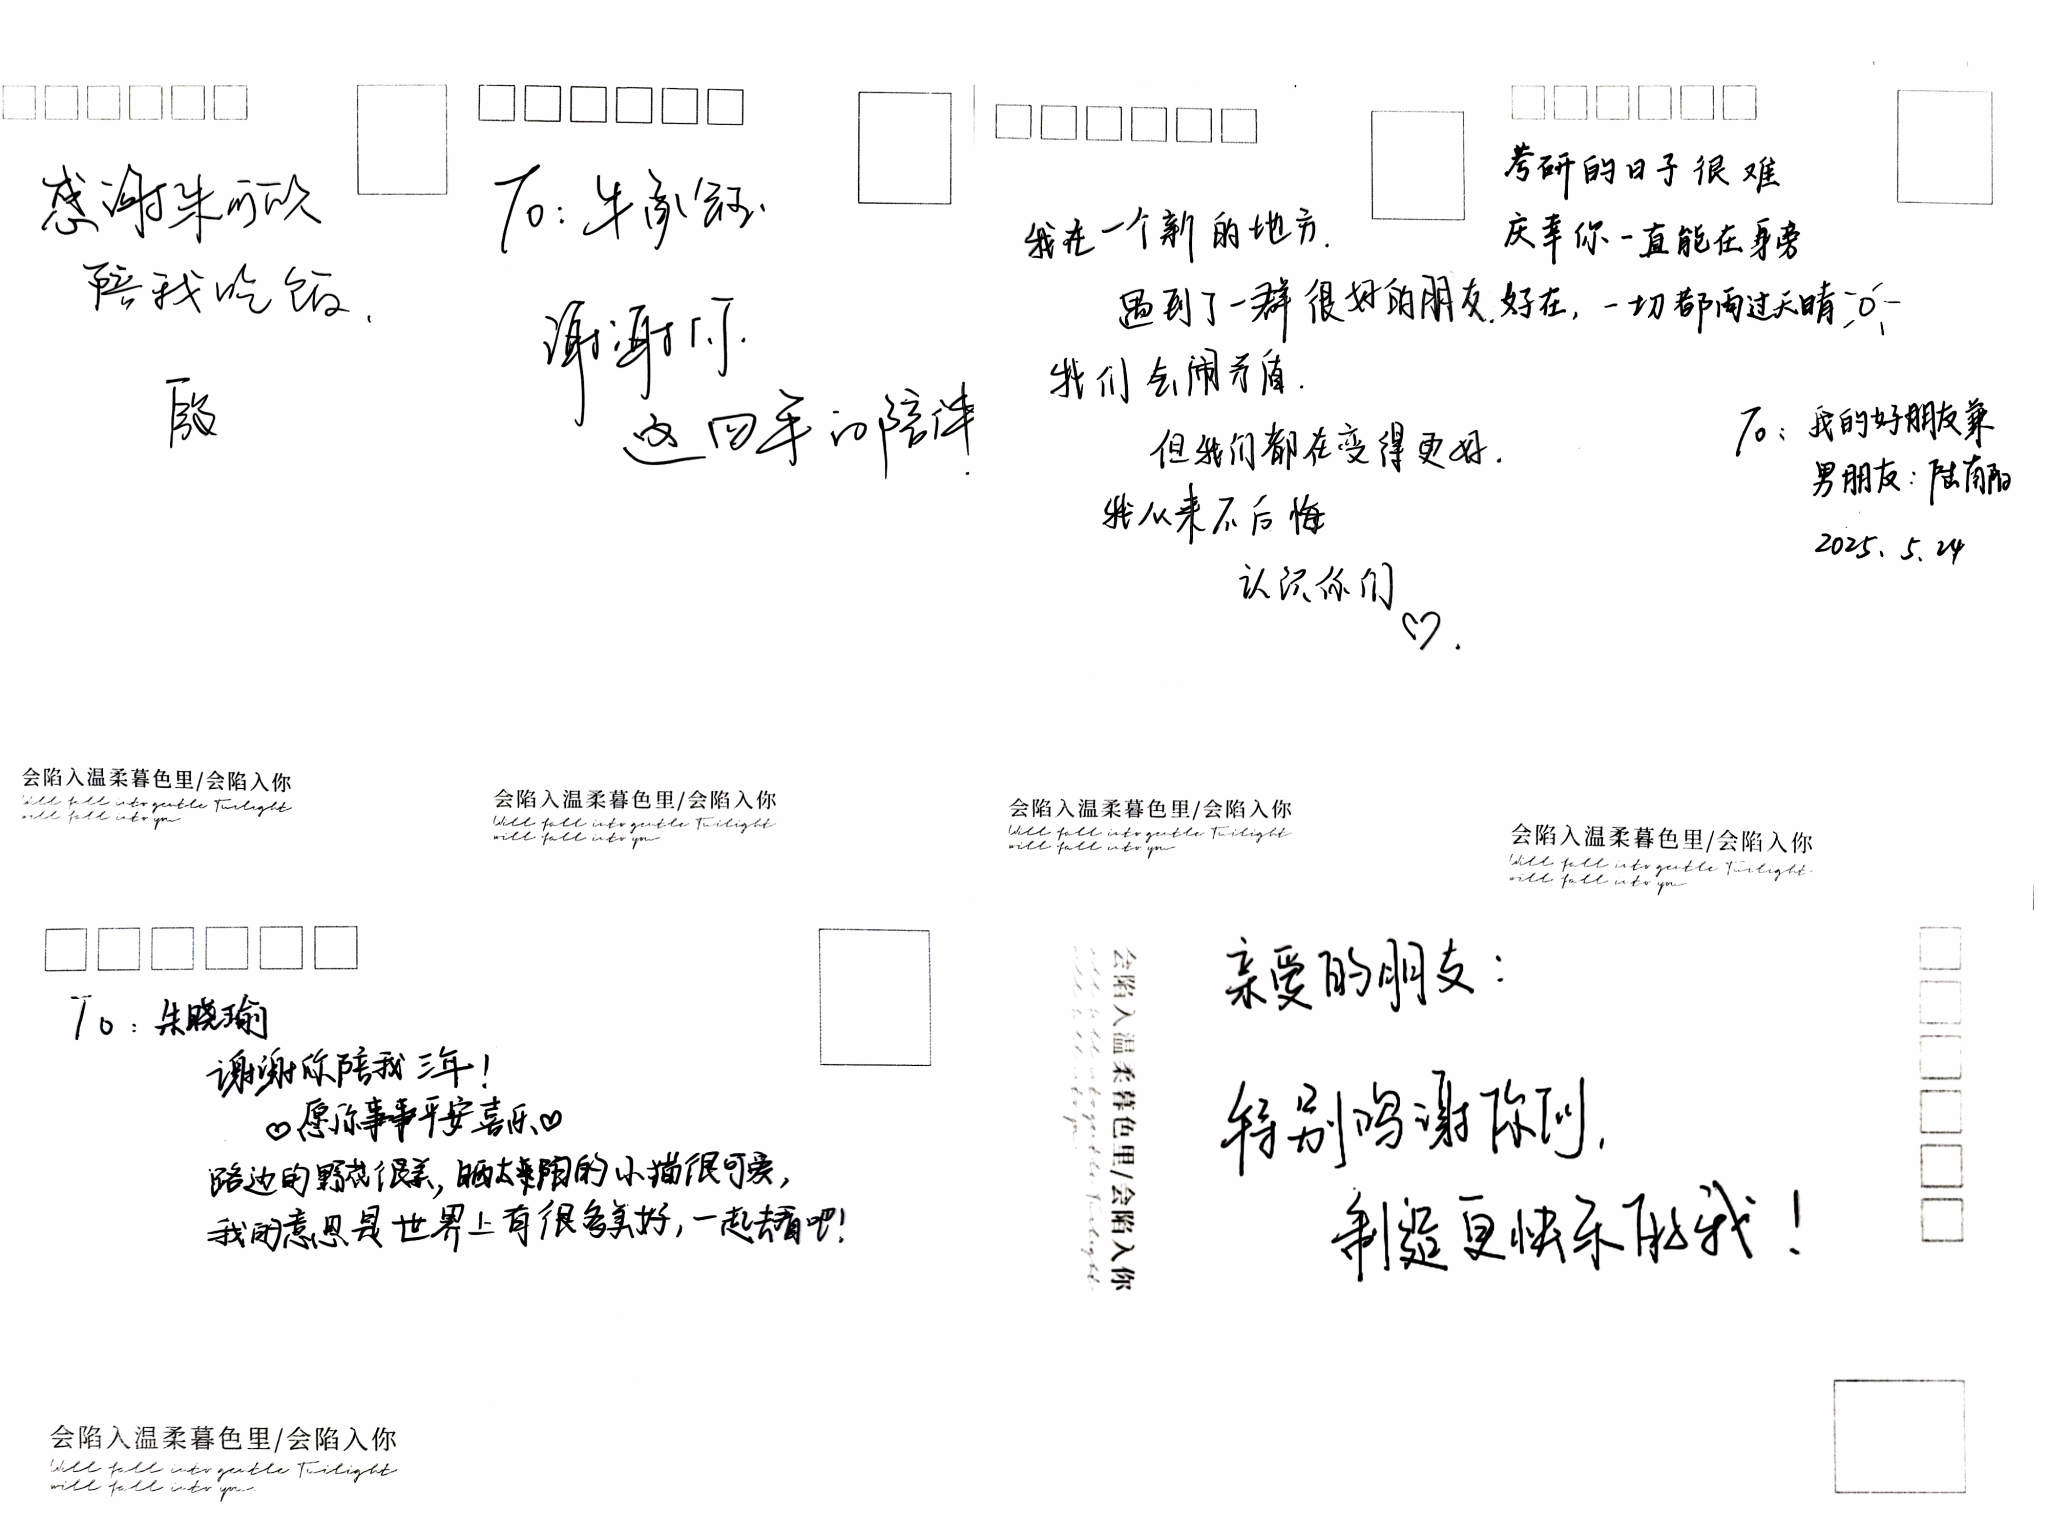 感谢朱可欣
陪我吃饭.
殷
会陷入温柔暮色里/会陷入你
Will fall into gentle Twilight
will fall into you
To:
谢谢你.
这四年的陪伴.
会陷入温柔暮色里/会陷入你
Will fall into gentle Twilight
will fall into you
我在一个新的地方.
遇到了一群很好的朋友.
我们会闹矛盾.
但我们都在变得更好.
我从来不后悔
认识你们
会陷入温柔暮色里/会陷入你
Will fall into gentle Twilight
will fall into you
考研的日子很难
庆幸你一直能在身旁
好在,一切都雨过天晴
To:我的好朋友兼
男朋友:陆南阳
2025.5.24
会陷入温柔暮色里/会陷入你
Will fall into gentle Twilight
will fall into you
To:朱晓瑜
谢谢你陪我三年!
愿你事事平安喜乐
路边的野花很美,晒太阳的小猫很可爱,
我的意思是世界上有很多美好,一起去看吧!
会陷入温柔暮色里/会陷入你
Will fall into gentle Twilight
will fall into you
亲爱的朋友:
特别鸣谢你们,
制造更快乐的我!
会陷入温柔暮色里/会陷入你